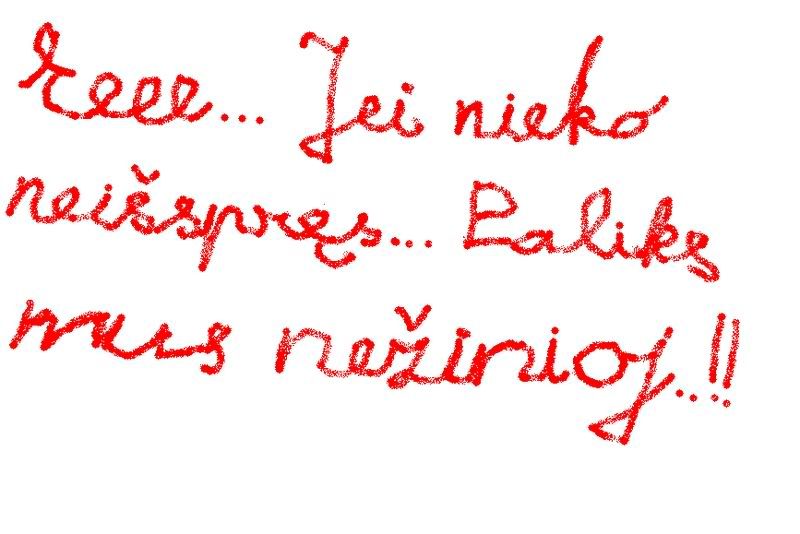 reee... Jei nieko
neišspręs... Paliks
mus nežinioj..!!